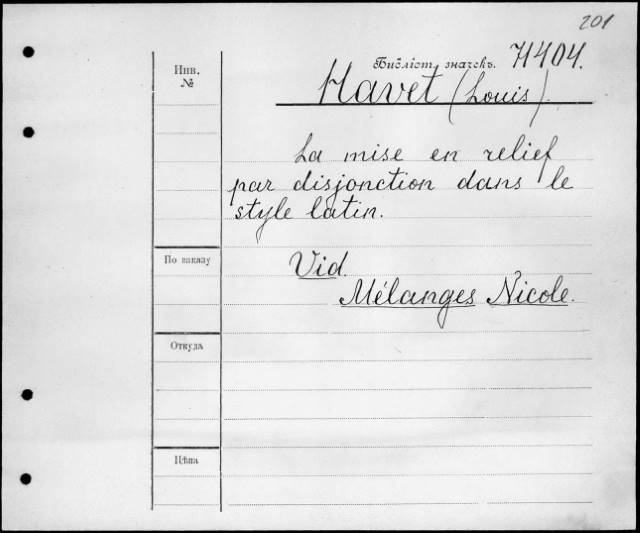 201
Библіот. значекъ. H404.
Инв.
№
Havet (Louis).
La mise en relief
par disjonction dans le
style latin.
По заказу
Vid.
Mélanges Nicole.
Откуда
Цѣна